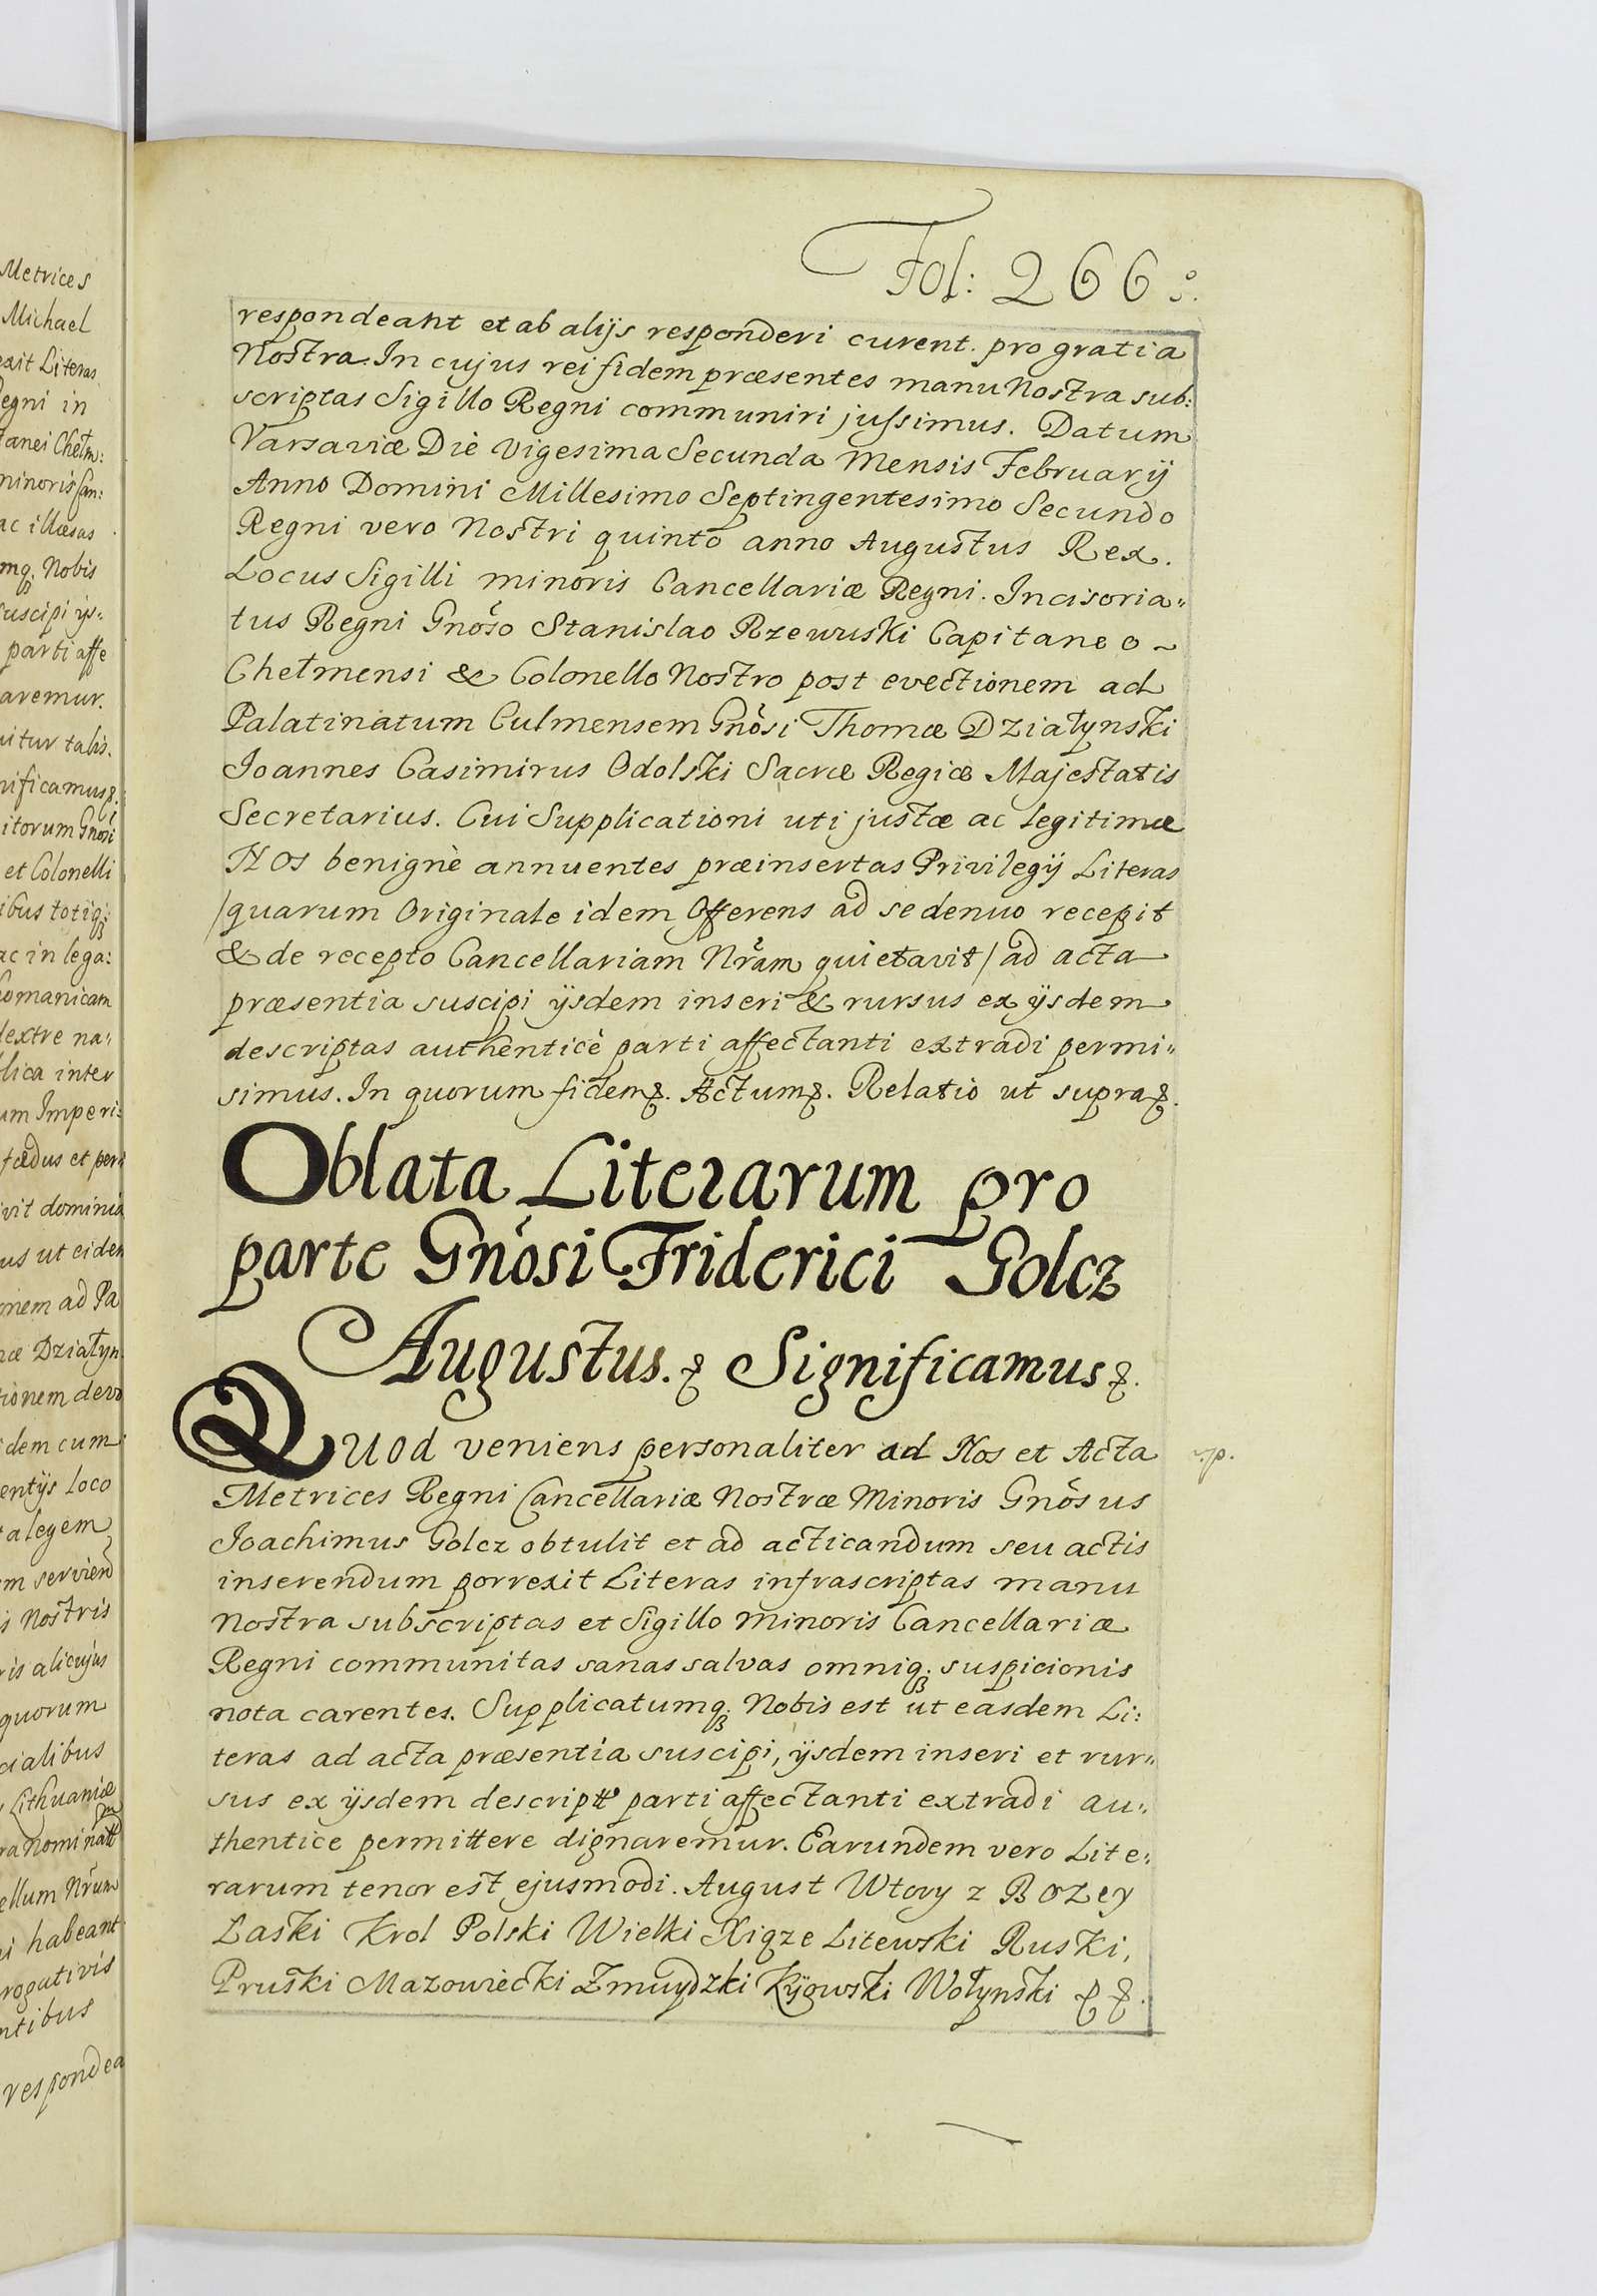 Metrices
Michael
exit Literas
Regni in
tanei Chełm:
minoris Can:
ac illæsas
mq. Nobis
suscipi ijs-
parti affe
aremur.
uitur talis.
nificamus &.
itorum Gnősi
et Colonelli
ibus totiq;
ac in lega:
omanicam
dextre na:
lica inter
um Imperi:
fœdus et per
vit dominia
us ut eidem
onem ad Pa
æ Działyn
tionem devo
dem cum
entijs loco
ta legem
em serviend
is Nostris
ris alicujus
quorum
cialibus
Lithuaniæ
ra nominatt
ellum Nrűm
i habeant
rogativis
ntibus
respondea
Fol: 266.
respondeant et ab alijs responderi curent. pro gratia
Nostra. In cujus rei fidem præsentes manu Nostra sub:
scriptas Sigillo Regni communiri jussimus. Datum
Varsaviæ Die Vigesima Secunda Mensis Februarij
Anno Domini Millesimo Septingentesimo Secundo
Regni vero Nostri quinto anno Augustus Rex.
Locus Sigilli minoris Cancellariæ Regni. Incisoria"
tus Regni Gnőso Stanislao Rzewuski Capitaneo ~
Chełmensi & Colonello Nostro post evectionem ad
Palatinatum Culmensem Gnősi Thomæ Działynski
Joannes Casimirus Odolski Sacræ Regiæ Majestatis
Secretarius. Cui Supplicationi uti justæ ac legitimæ
Nos benignè annuentes præinsertas Privilegij Literas
/quarum Originale idem Offerens ad se denuo recepit
& de recepto Cancellariam Nrăm quietavit/ ad acta
præsentia suscipi ijsdem inseri & rursus ex ijsdem
descriptas authenticè parti affectanti extradi permi"
simus. In quorum fidem &. Actum &. Relatio ut supra &.
Oblata Literarum pro
parte Gnősi Friderici Golcz
Augustus. & Significamus &.
Quod veniens personaliter ad Nos et Acta
v.p.
Metrices Regni Cancellariæ Nostræ Minoris Gnősus
Joachimus Golcz obtulit et ad acticandum seu actis
inserendum porrexit Literas infrascriptas manu
Nostra subscriptas et Sigillo minoris Cancellariæ
Regni communitas sanas salvas omniq; suspicionis
nota carentes. Supplicatumq; Nobis est ut easdem Li:
teras ad acta præsentia suscipi, ijsdem inseri et rur"
sus ex ijsdem descriptt parti affectanti extradi au"
thentice permittere dignaremur. Earundem vero Lite:
rarum tenor est ejusmodi. August Wtory z Bozey
Laski Krol Polski Wielki Xiąze Litewski Ruski,
Pruski Mazowiecki Zmuydzki Kijowski Wołynski & &.